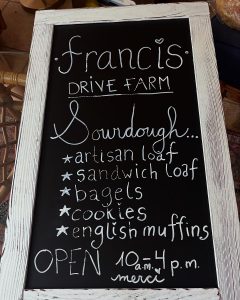 francis
DRIVE FARM
Sourdough...
★ artisan loaf
★ sandwich loaf
★ bagels
★ cookies
★ english muffins
OPEN 10 a.m. - 4 p.m.
merci